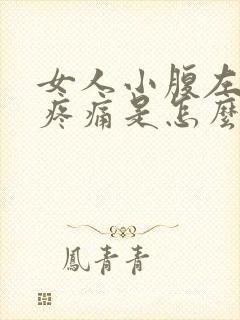 女人小腹左
疼痛是怎麼
鳳青青